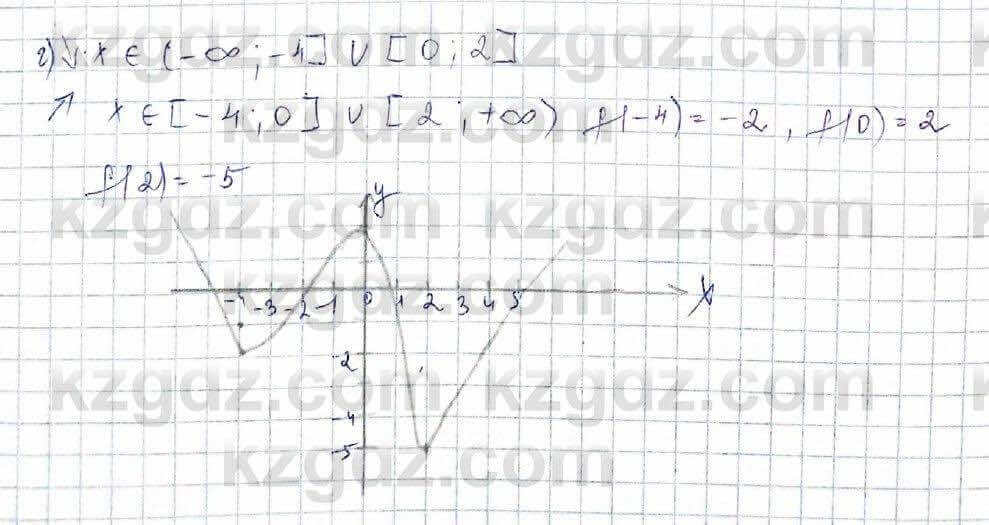 г) ↓: x ∈ (-∞; -4] ∪ [0; 2]
↗ x ∈ [-4; 0] ∪ [2; +∞) f(-4) = -2, f(0) = 2
f(2) = -5
y
-4 -3 -2 -1 0 1 2 3 4 5 x
-2
-4
-5
kzgdz.com kzgdz.com
kzgdz.com
kzgdz.com kzgdz.com
kzgdz.com
kzgdz.com kzgdz.com
kzgdz.com